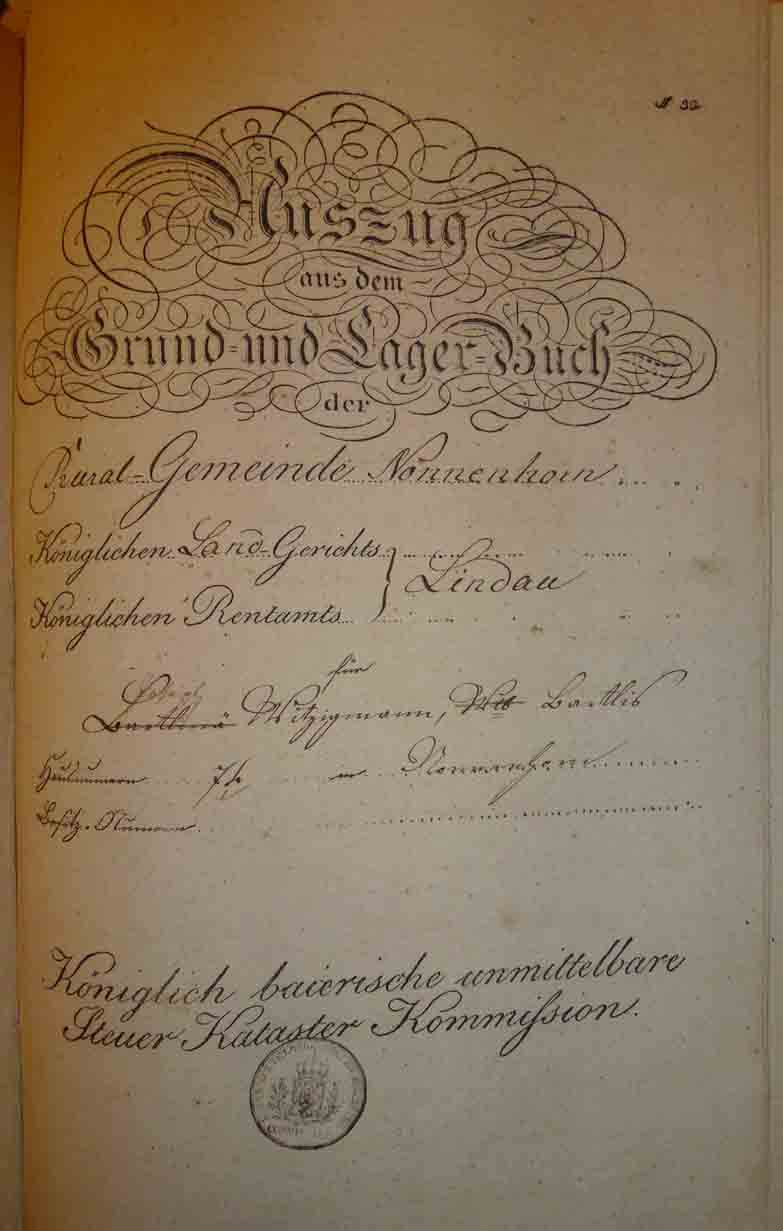 N 32
Auszug
aus dem
Grund- und Lager-Buch
der
Rural-Gemeinde Nonnenhorn
Königlichen Land-Gerichts
Lindau
Königlichen Rentamts
für
Joseph
Bartlmä Witzigmann, Wit Bartlis
Hausnummern in Nonnenhorn
Besitz-Nummern
Königlich baierische unmittelbare
Steuer Kataster Kommißion.